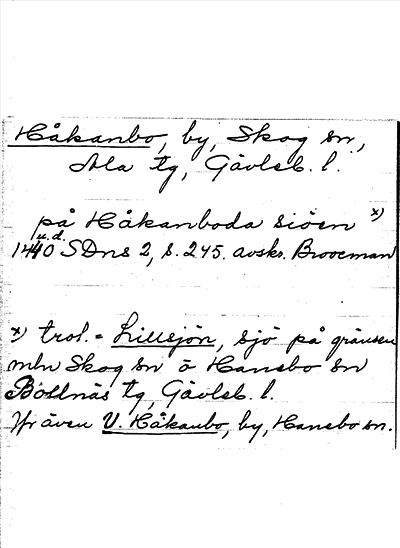 Håkanbo, by, Skog sn,
Ala tg, Gävleb. l.
på Håkanboda siöen x)
u.d.
1440 SDns 2, s. 245. avskr. Brooeman
x) trol. = Lillsjön, sjö på gränsen
mln Skog sn o Hanebo sn
Bollnäs tg, Gävleb. l.
Jfr även V. Håkanbo, by, Hanebo sn.